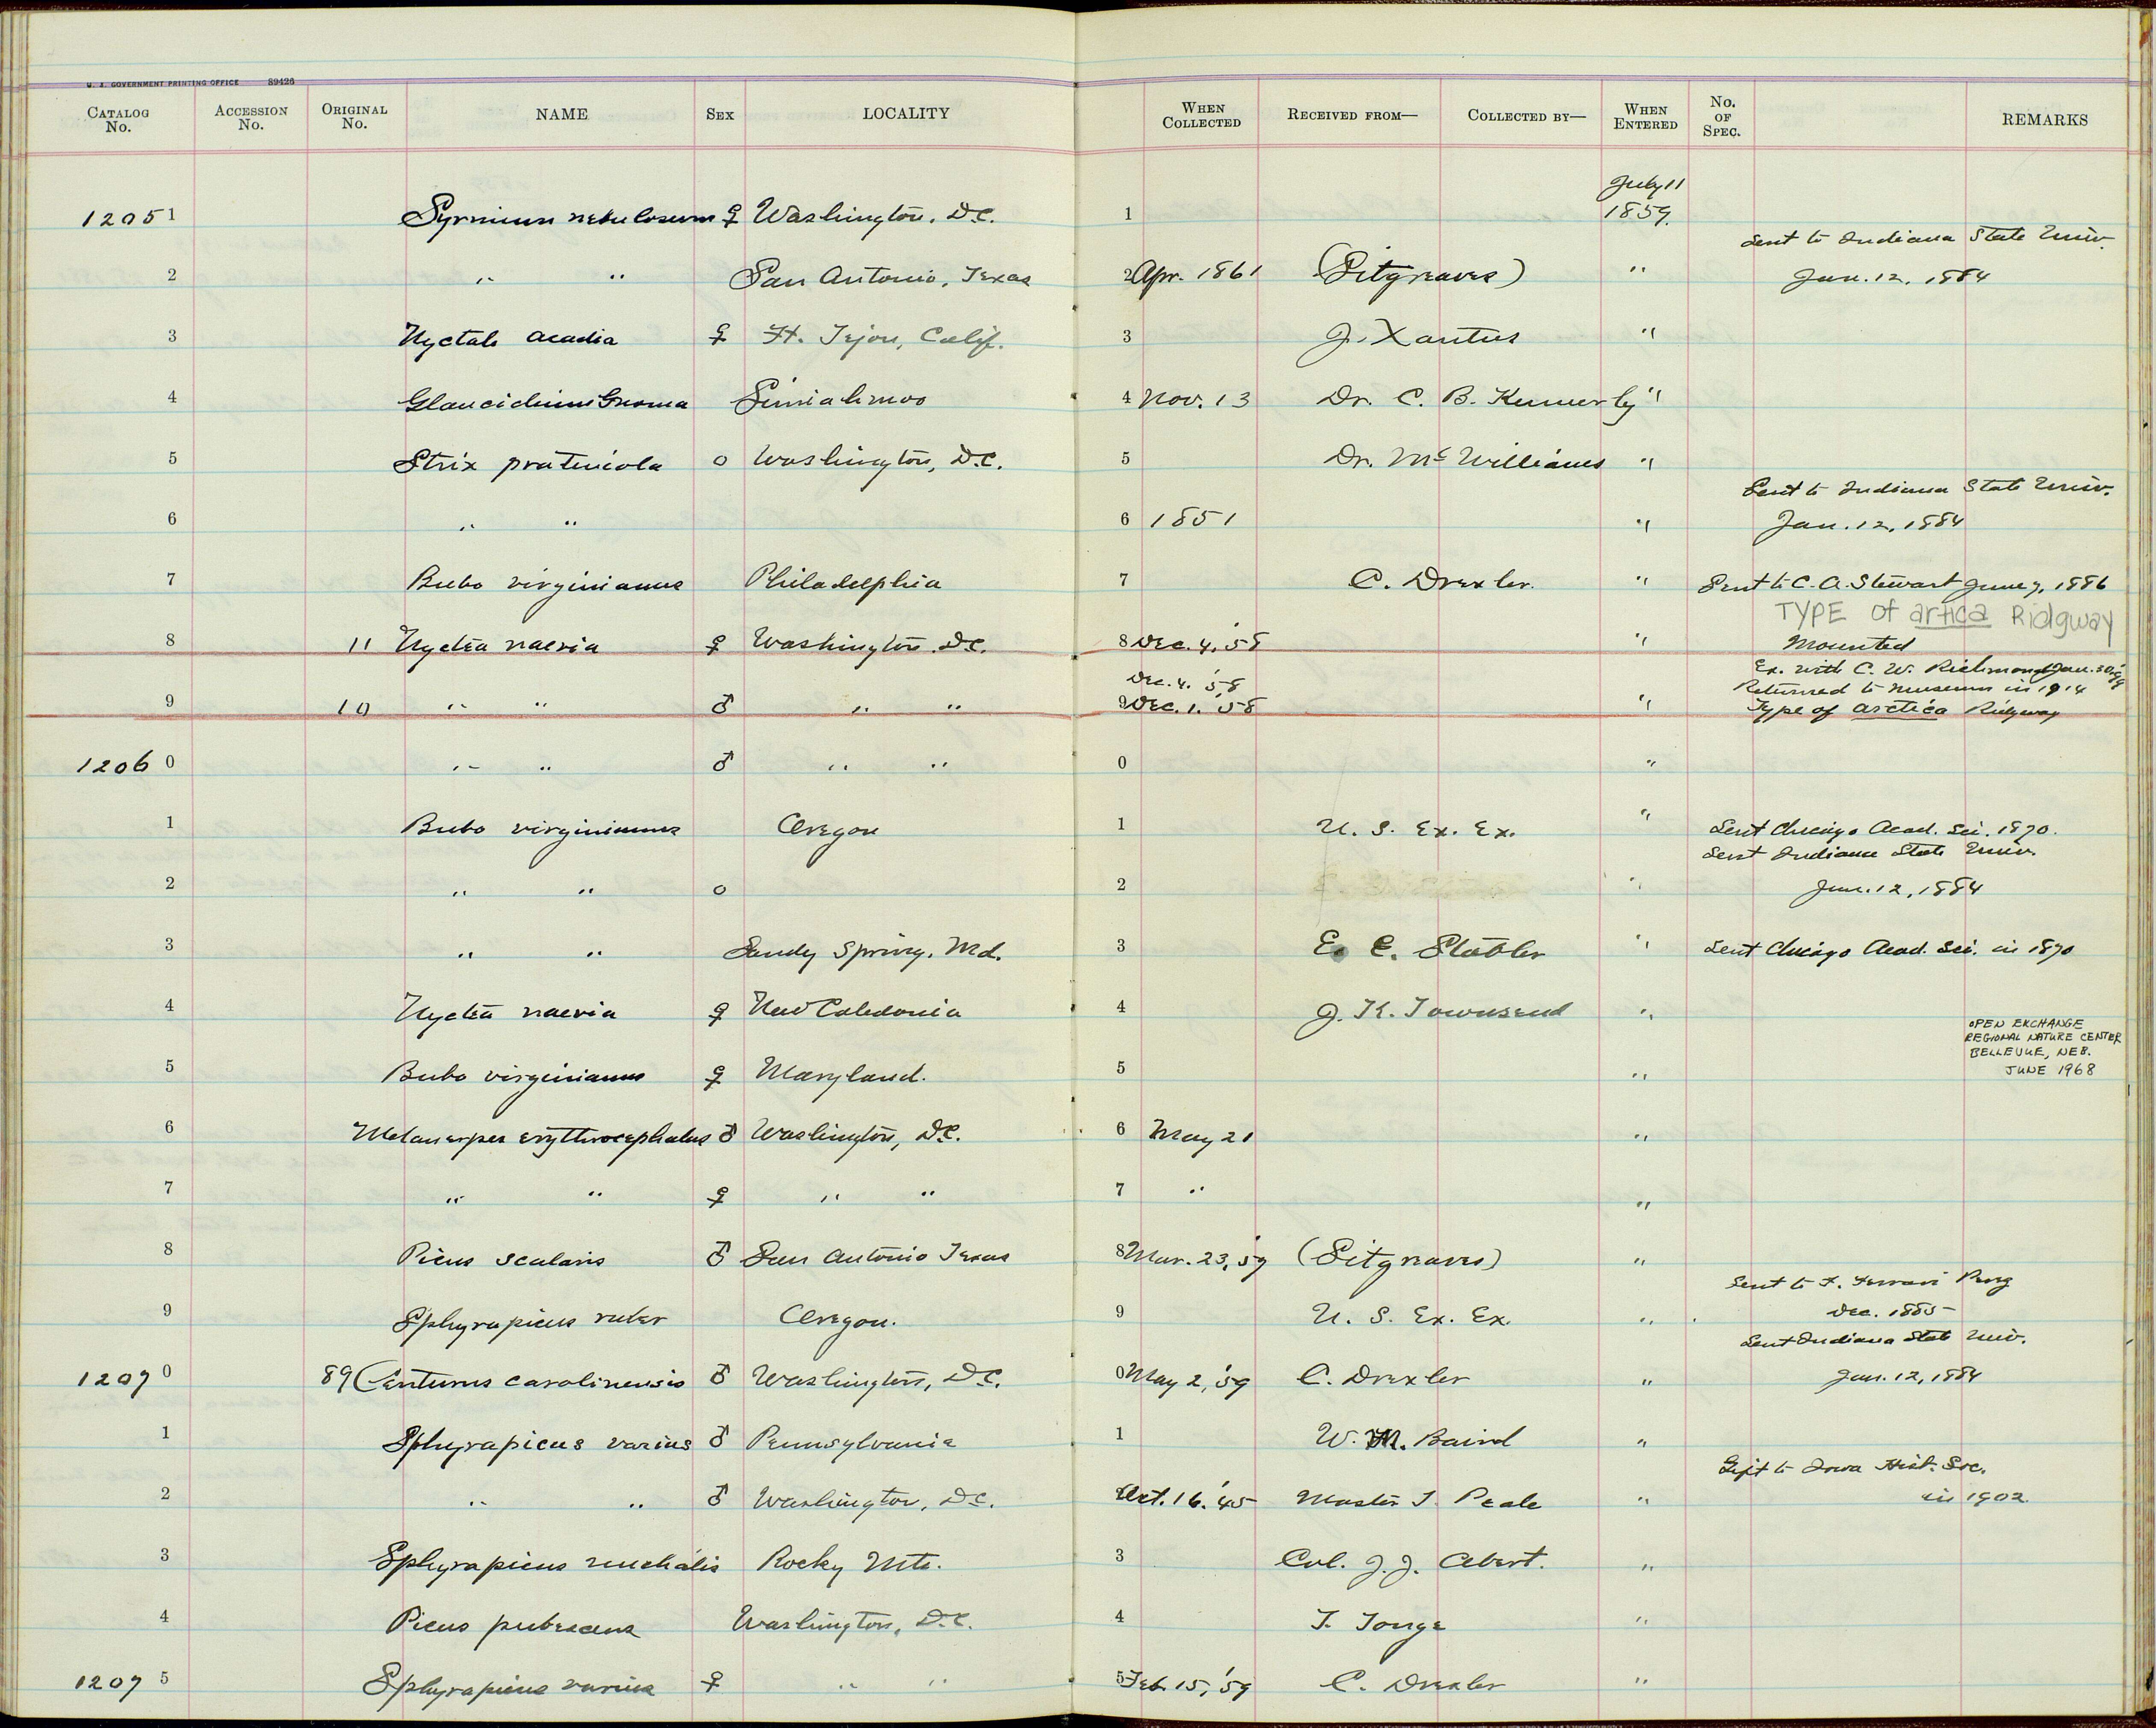 U. S. GOVERNMENT PRINTING OFFICE 89426
CATALOG No. ACCESSION No. ORIGINAL No. NAME SEX LOCALITY WHEN COLLECTED RECEIVED FROM— COLLECTED BY— WHEN ENTERED No. OF SPEC. REMARKS
July 11
12051 Syrnium nebulosum ♀ Washington, D.C. 1 1859.
Sent to Indiana State Univ.
2 " " San Antonio, Texas 2 Apr. 1861 (Sitgreaves) " Jan. 12, 1884
3 Nyctale acadia ♀ Ft. Tejon, Calif. 3 J. Xantus "
4 Glaucidium Gnoma Simiahmoo 4 Nov. 13 Dr. C. B. Kennerly "
5 Strix pratincola o Washington, D.C. 5 Dr. McWilliams "
Sent to Indiana State Univ.
6 " " 6 1851 " Jan. 12, 1884
7 Bubo virginianus Philadelphia 7 C. Drexler. " Sent to C. A. Stewart June 7, 1886
TYPE of artica Ridgway
8 11 Nyctea naevia ♀ Washington D.C. 8 Dec. 4, '58 " Mounted
Ex. with C. W. Richmond Jan.
Dec. 4. '58 Returned to museum in 1914
9 10 " " ♂ " " 9 Dec. 1. '58 " Type of arctica Ridgway
12060 " " ♂ " " 0 "
1 Bubo virginianus Oregon 1 U. S. Ex. Ex. " Sent Chicago Acad. Sci. 1870.
Sent Indiana State Univ.
2 " " o 2 " Jan. 12, 1884
3 " " Sandy Spring, Md. 3 E. E. Stabler " Sent Chicago Acad. Sci. in 1870
4 Nyctea naevia ♀ New Caledonia 4 J. K. Townsend "
OPEN EXCHANGE
REGIONAL NATURE CENTER
BELLEVUE, NEB.
5 Bubo virginianus ♀ Maryland. 5 " JUNE 1968
6 Melanerpes erythrocephalus ♂ Washington, D.C. 6 May 21 "
7 " " ♀ " " 7 " "
8 Picus scalaris ♂ San Antonio Texas 8 Mar. 23, '59 (Sitgreaves) "
Sent to F. Ferrari Perez
9 Sphyrapicus ruber Oregon. 9 U. S. Ex. Ex. " Dec. 1885
Sent Indiana State Univ.
12070 89 Centurus carolinensis ♂ Washington, D.C. 0 May 2, '59 C. Drexler " Jan. 12, 1884
1 Sphyrapicus varius ♂ Pennsylvania 1 W. M. Baird "
Gift to Iowa Hist. Soc.
2 " " ♂ Washington, D.C. 2 Oct. 16. '45 Master T. Peale " in 1902
3 Sphyrapicus nuchalis Rocky Mts. 3 Col. J. J. Abert. "
4 Picus pubescens Washington, D.C. 4 T. Tonge "
12075 Sphyrapicus varius ♀ " " 5 Feb. 15, '59 C. Drexler "